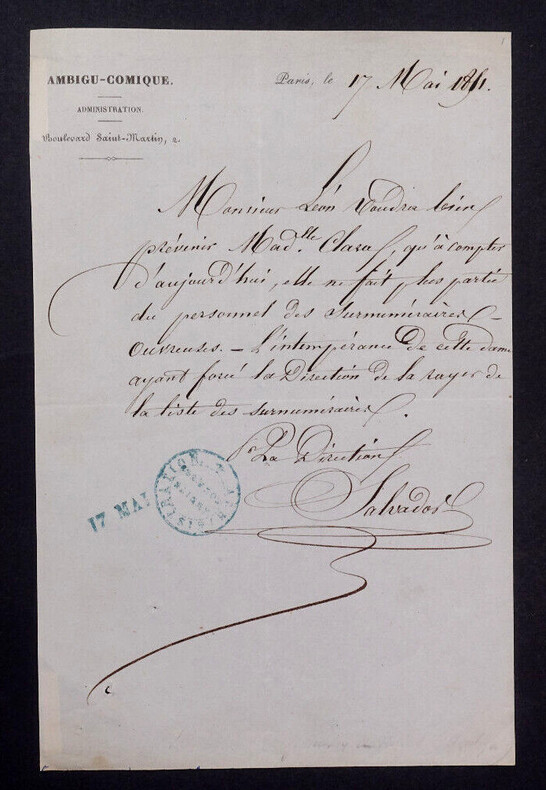 AMBIGU-COMIQUE.
ADMINISTRATION.
Boulevard Saint-Martin, 2.
Paris, le 17 Mai
Monsieur Léon Voudra bien
prévenir Mad.lle Clara, qu'à compter
d'aujourd'hui, elle ne fait plus partie
du personnel des Surnuméraires -
Ouvreuses. - L'intempérance de cette dame
ayant forcé la Direction de la rayer de
la liste des surnuméraires.
La Direction
Salvador
17 MAI